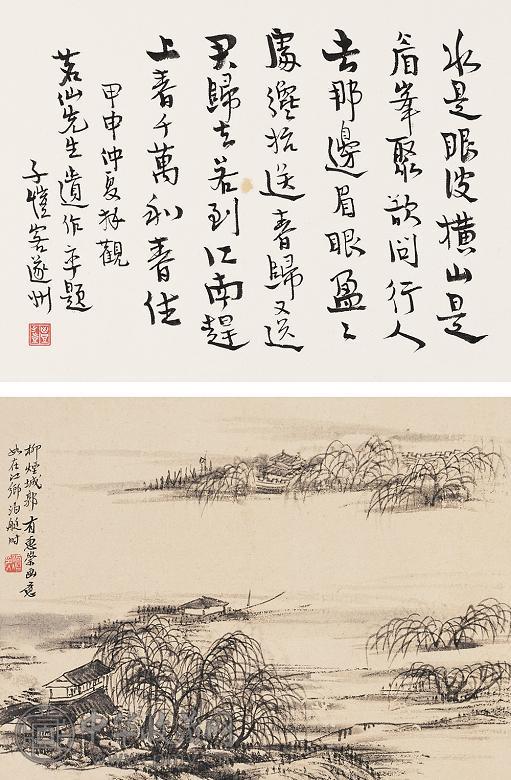 水是眼波橫山是
眉峯聚欲問行人
去那邊眉眼盈〻
處纔始送春歸又送
君歸去若到江南趕
上春千萬和春住
甲申仲夏拜觀
茗仙先生遺作率題
子愷客遂州
柳煙城郭有惠崇畫意
如在江鄉泊艇时